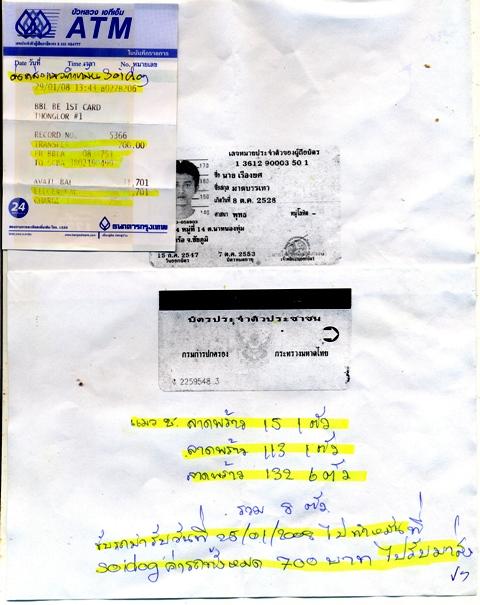 บัวหลวง เอทีเอ็ม
ATM
ใบบันทึกรายการ
Date วันที่ Time เวลา No. หมายเลข
Soidog
29/01/08 13:43 B0278206
BBL BE 1ST CARD
THONGLOR #1
RECORD NO. 5366
TRANSFER 700.00
FR BBLA 08 751
AVAIL BAL 701
701
24
ธนาคารกรุงเทพ
เลขหมายประจำตัวของผู้ถือบัตร
1 3612 90003 50 1
ชื่อ นาย เรืองยศ
ชื่อสกุล มาตบรรเทา
เกิดวันที่ 8 ต.ค. 2528
ศาสนา พุทธ หมู่โลหิต -
170
160
150
140
4 หมู่ที่ 14 ต.นาหนองทุ่ม
จ.ชัยภูมิ
15 ก.ค. 2547
วันออกบัตร
7 ต.ค. 2553
บัตรหมดอายุ
เจ้าพนักงานออกบัตร
บัตรประจำตัวประชาชน
กรมการปกครอง กระทรวงมหาดไทย
2259548 3
แมว ซ. ลาดพร้าว 15 1 ตัว
ลาดพร้าว 113 1 ตัว
ลาดพร้าว 132 6 ตัว
รวม 8 ตัว
วันที่ 25/01/2008 ไปทำหมันที่
soidog ค่ารถทั้งหมด 700 บาท ไปรับมาส่ง